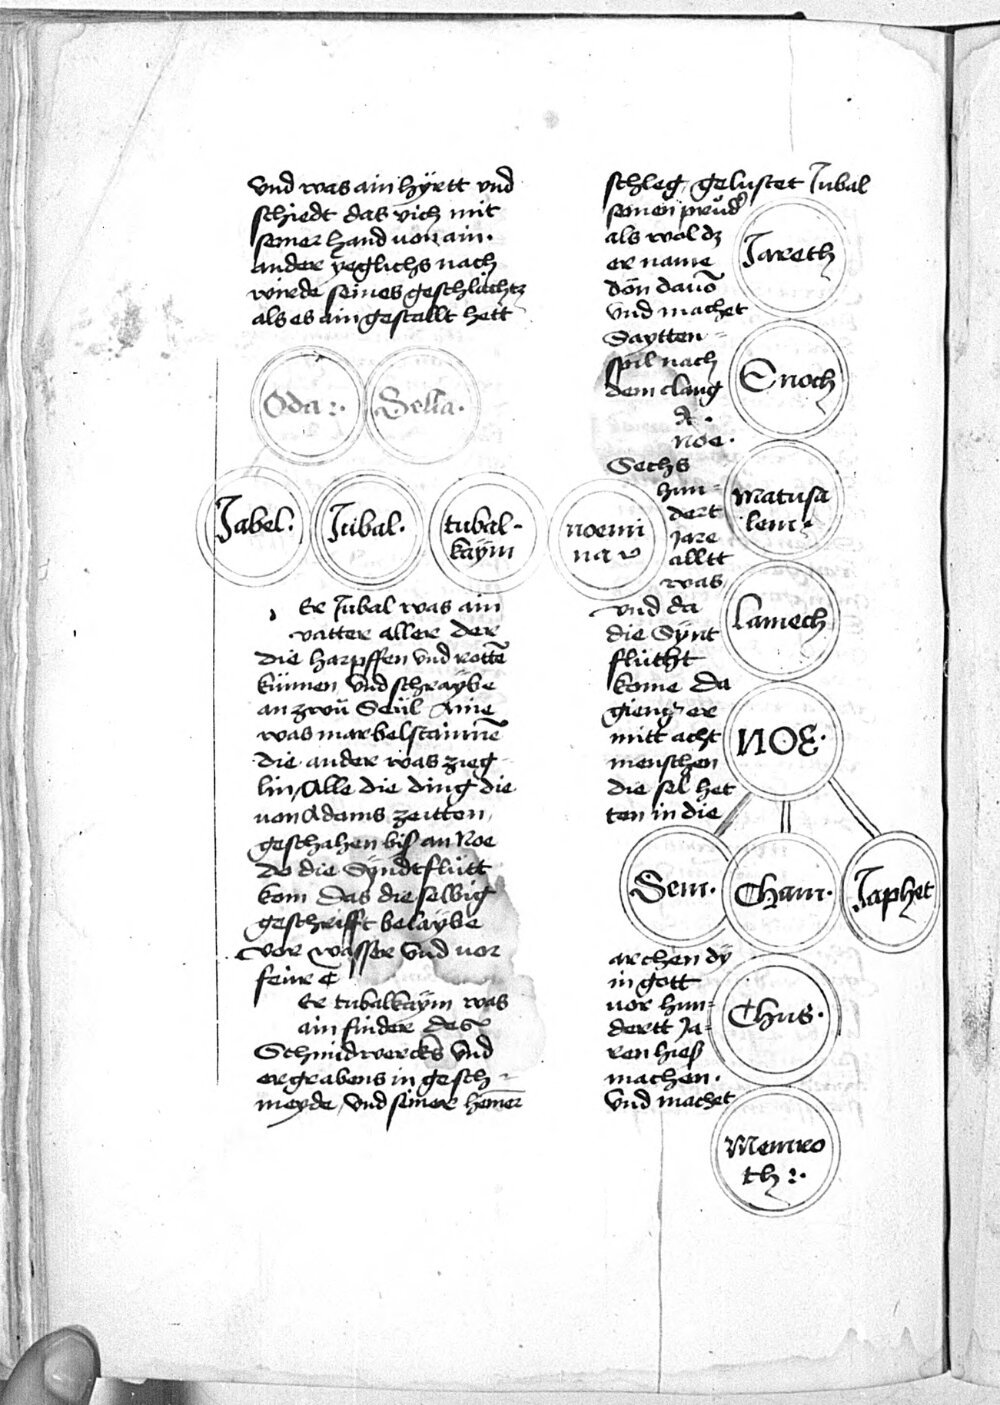 vnd was ain hÿrtt vnd
schiedt das vich mit
seiner hand uon ain·
ander yeglichs nach
wirde seines geschlächtz
als es ain gestallt hett
Oda:·
Sella·
Jabel·
Jubal·
tubal-
kaÿm
noemi
na
Er Jubal was ain
vatter aller der
die harpffen vnd rottē
künnen vnd schraÿbe
an zwu Seül Aine
was marbelstainnē
die ander was zieg
lin, Alle die ding die
uon Adams zeitten
geschahen biß an Noe
do die Sÿndtflutt
kom Das die selbig
geschrifft belaÿbe
vor wasser vnd uor
feur
Er tubalkaÿm was
ain finder des
Schmidwercks vnd
ergrabens in gesch-
meyde, vnd seiner hemer
schleg, gelustet Jubal
seinen prud
als wol dz
er name
don dauō
vnd machet
Saytten-
spil nach
dem clang
noe·
Sechs
hun-
dert
jare
alltt
was
vnd da
die Sÿnt
flutht
kome da
gieng er
mitt acht
menschen
die sel het
ten in die
Jareth
Enoch
Matusa
lem·
lamech
NOE·
Sem·
Cham·
Japhet
archen dÿ
in gott
uor hun-
dertt Ja-
ren hieß
machen·
vnd machet
Chus·
Memro
th:·